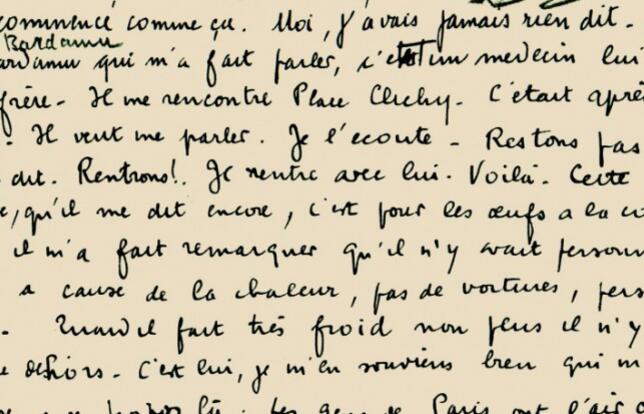 commencé comme ça. Moi, j'avais jamais rien dit.
Bardamu
ardamu qui m'a fait parler, c'était un medecin lui
frère - Il me rencontre Place Clichy. C'était après
. Il veut me parler. Je l'ecoute - Restons pas
dit. Rentrons!. Je rentre avec lui. Voilà. Cette
e, qu'il me dit encore, c'est pour les œufs a la co
il m'a fait remarquer qu'il n'y avait personn
a cause de la chaleur, pas de voitures, pers
. Quand il fait très froid non plus il n'y
e dehors - C'est lui, je m'en souviens bien qui m
les gens de Paris ont l'air